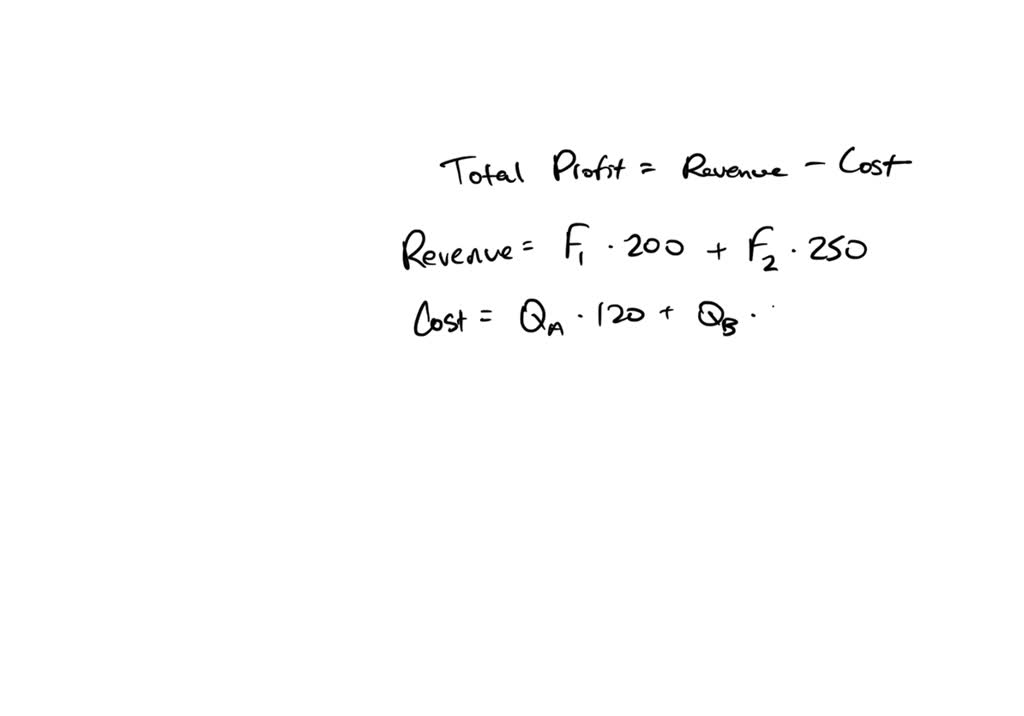 Total Profit = Revenue - Cost
Revenue = F₁ · 200 + F₂ · 250
Cost = Q_A · 120 + Q_B ·